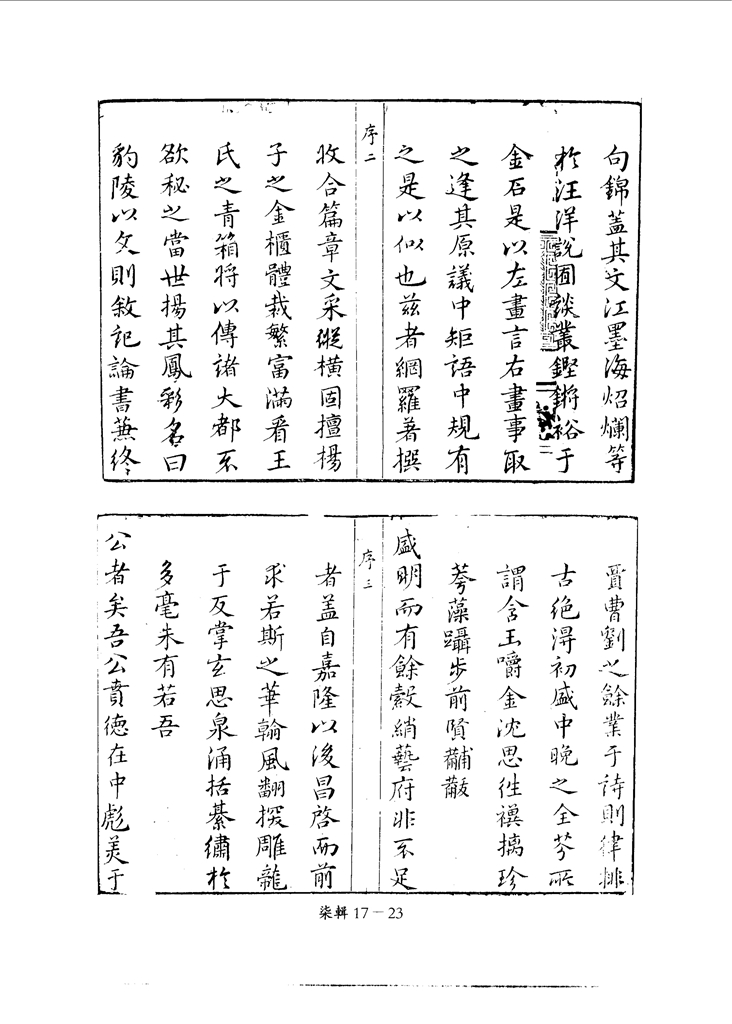 句錦蓋其文江墨海炤爛等
於汪洋說圃談叢鏗鏘裕于
金石是以左畫言右畫事取
之逢其原議中矩語中規有
之是以似也茲者網羅著撰
序二
收合篇章文采縱橫固擅楊
子之金櫃體裁繁富滿看王
氏之青箱將以傳諸大都不
欲秘之當世揚其鳳彩名曰
豹陵以文則敘記論書兼終
賈曹劉之餘業于詩則律排
古絶淂初盛中晚之全芬所
謂含玉嚼金沈思徃禩摛珍
蕚藻躡步前賢黼黻
盛明而有餘縠綃藝府非不足
序三
者蓋自嘉隆以後昌啓而前
求若斯之華輪風翻掞雕龍
于反掌玄思泉涌括綦繡於
多毫朱有若吾
公者矣吾公賁德在中彪美于
柒輯17－23